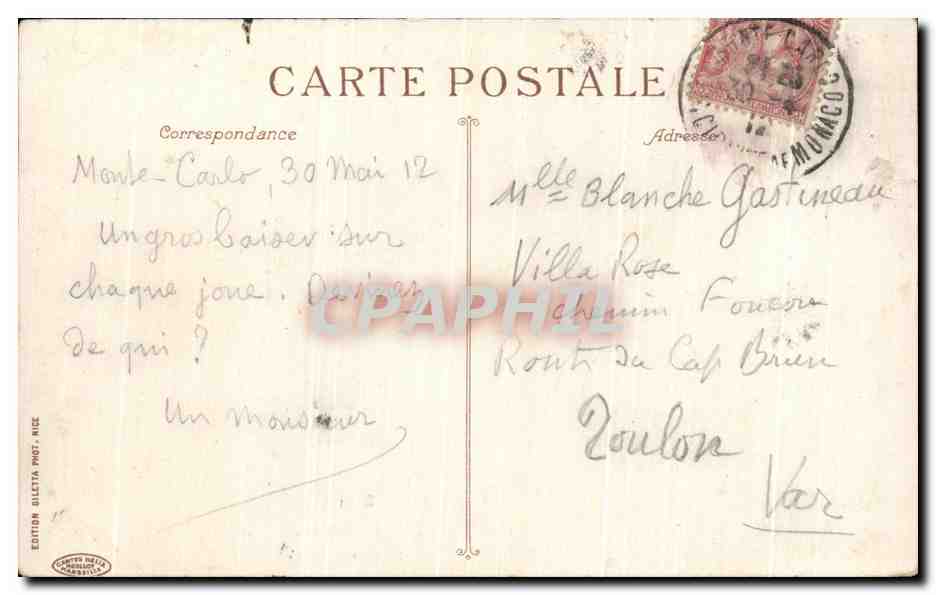 CARTE POSTALE
Correspondance
Monte-Carlo, 30 Mai 12
Un gros baiser sur
chaque joue. Devinez
de qui ?
Un monsieur
Adresse
Mlle Blanche Gastineau
Villa Rose
chemin
Route du Cap Brun
Toulon
Var
MONTE-CARLO
MONACO
12
CPAPHIL
EDITION GILETTA PHOT. NICE
CARTES HELIA
MARSEILLE